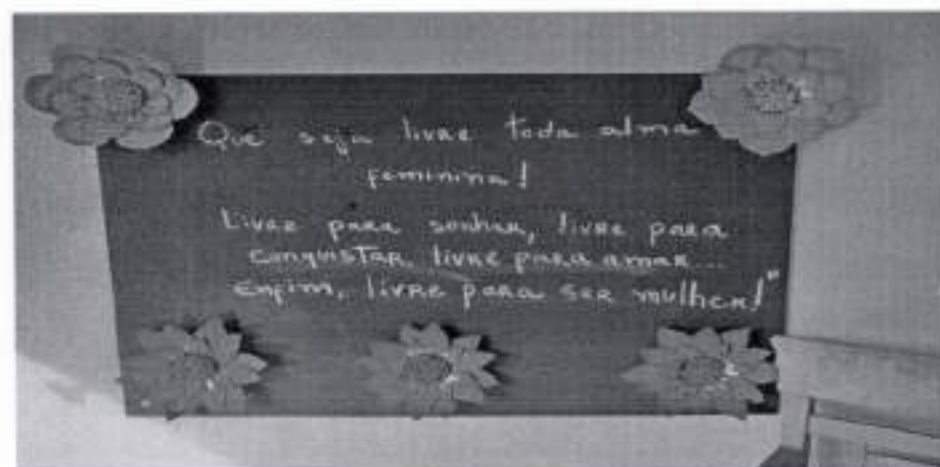 Que seja livre toda alma
feminina!
Livre para sonhar, livre para
conquistar, livre para amar...
Enfim, livre para ser mulher!"